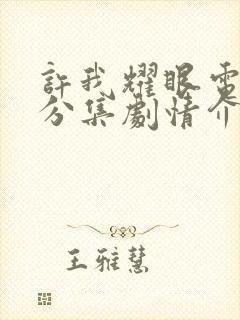 許我耀眼電
分集劇情介
王雅慧